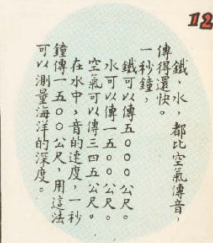 12
鐵、水，都比空氣傳音，
傳得還快。
一秒鐘，
鐵可以傳五〇〇〇公尺。
水可以傳一五〇〇公尺。
空氣可以傳三四五公尺。
在水中，音的速度，一秒
鐘傳一五〇〇公尺，用這法
可以測量海洋的深度。